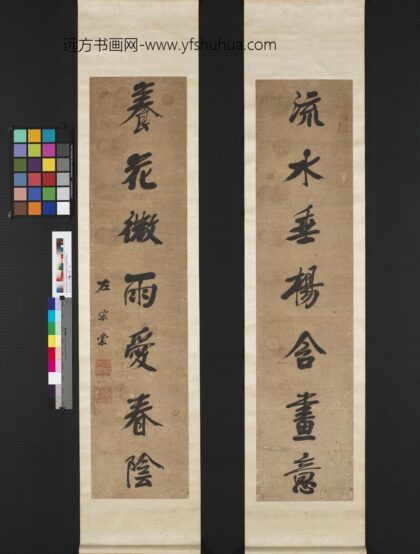 远方书画网-www.yfshuhua.com
流水垂楊含畫意
養花微雨愛春陰
左宗棠